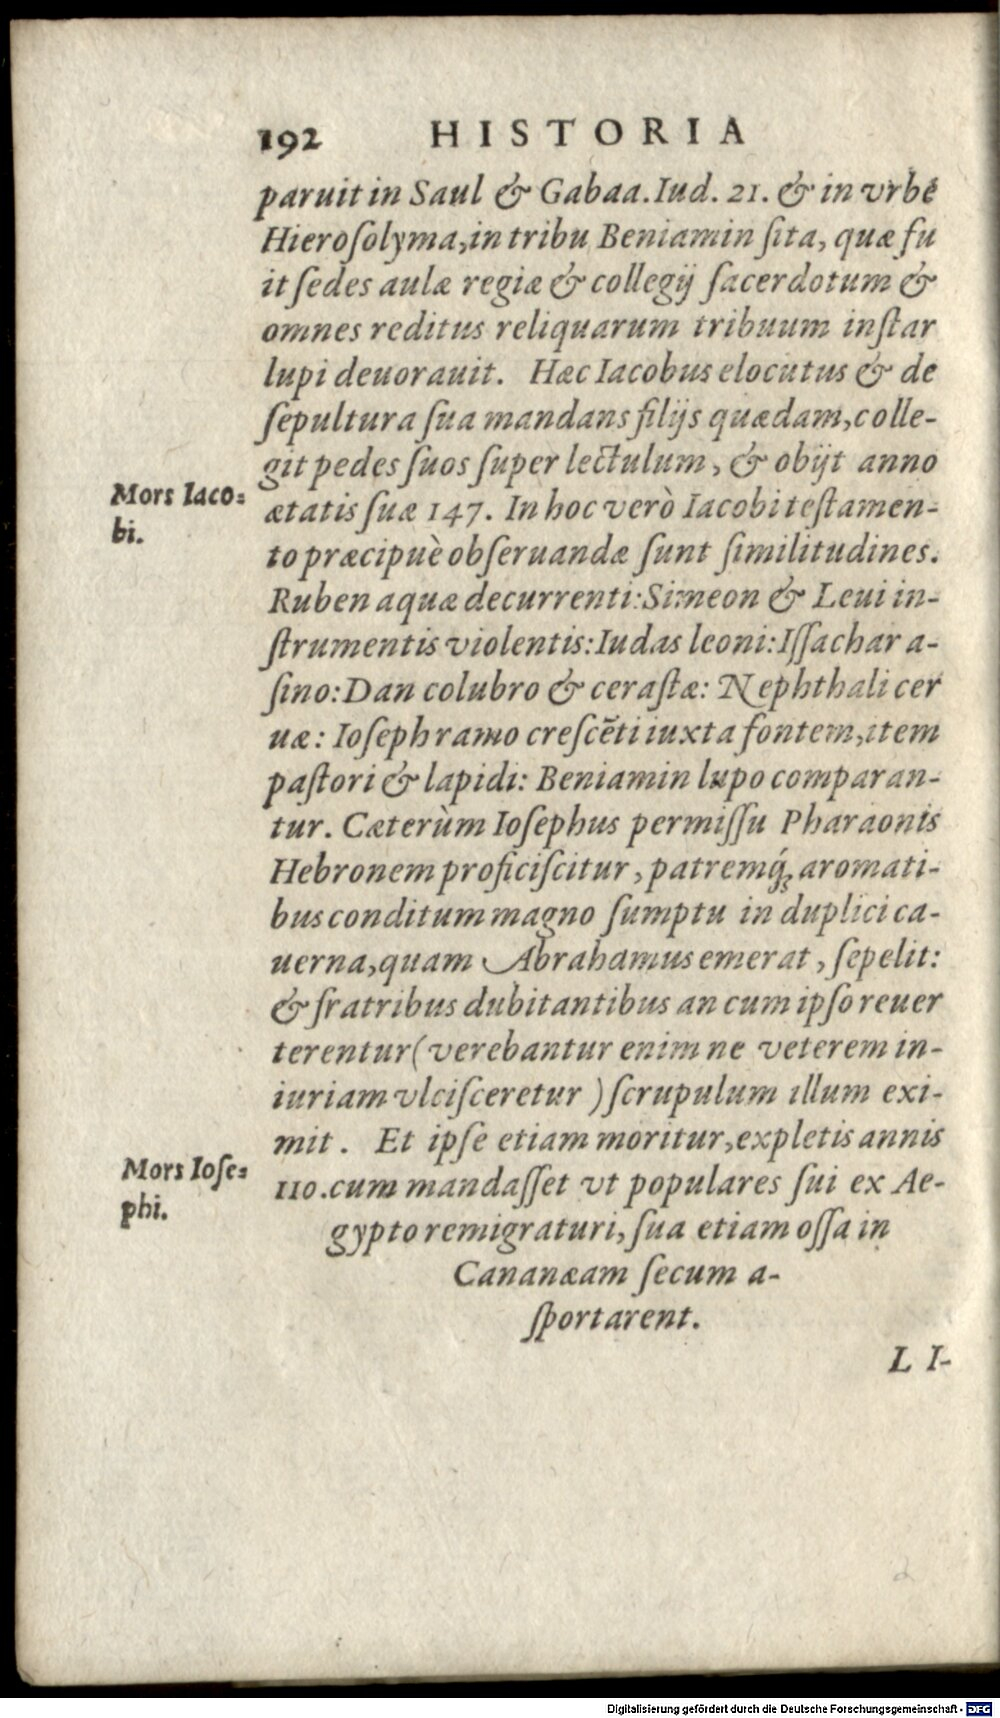 192 HISTORIA
paruit in Saul & Gabaa. Iud. 21. & in vrbe
Hieroſolyma, in tribu Beniamin ſita, quæ fu
it ſedes aulæ regiæ & collegij ſacerdotum &
omnes reditus reliquarum tribuum inſtar
lupi deuorauit. Hæc Iacobus elocutus & de
ſepultura ſua mandans filijs quædam, colle-
git pedes ſuos ſuper lectulum, & obijt anno
Mors Iaco-
bi.
ætatis ſuæ 147. In hoc verò Iacobi teſtamen-
to præcipuè obſeruandæ ſunt ſimilitudines.
Ruben aquæ decurrenti: Simeon & Leui in-
ſtrumentis violentis: Iudas leoni: Iſſachar a-
ſino: Dan colubro & ceraſtæ: Nephthali cer
uæ: Ioſeph ramo creſcẽti iuxta fontem, item
paſtori & lapidi: Beniamin lupo comparan-
tur. Cæterùm Ioſephus permiſſu Pharaonis
Hebronem proficiſcitur, patremq́; aromati-
bus conditum magno ſumptu in duplici ca-
uerna, quam Abrahamus emerat, ſepelit:
& fratribus dubitantibus an cum ipſo reuer
terentur (verebantur enim ne veterem in-
iuriam vlciſceretur) ſcrupulum illum exi-
mit. Et ipſe etiam moritur, expletis annis
Mors Ioſe-
phi.
110. cum mandaſſet vt populares ſui ex Ae-
gypto remigraturi, ſua etiam oſſa in
Cananæam ſecum a-
ſportarent.
L I-
Digitalisierung gefördert durch die Deutsche Forschungsgemeinschaft - DFG